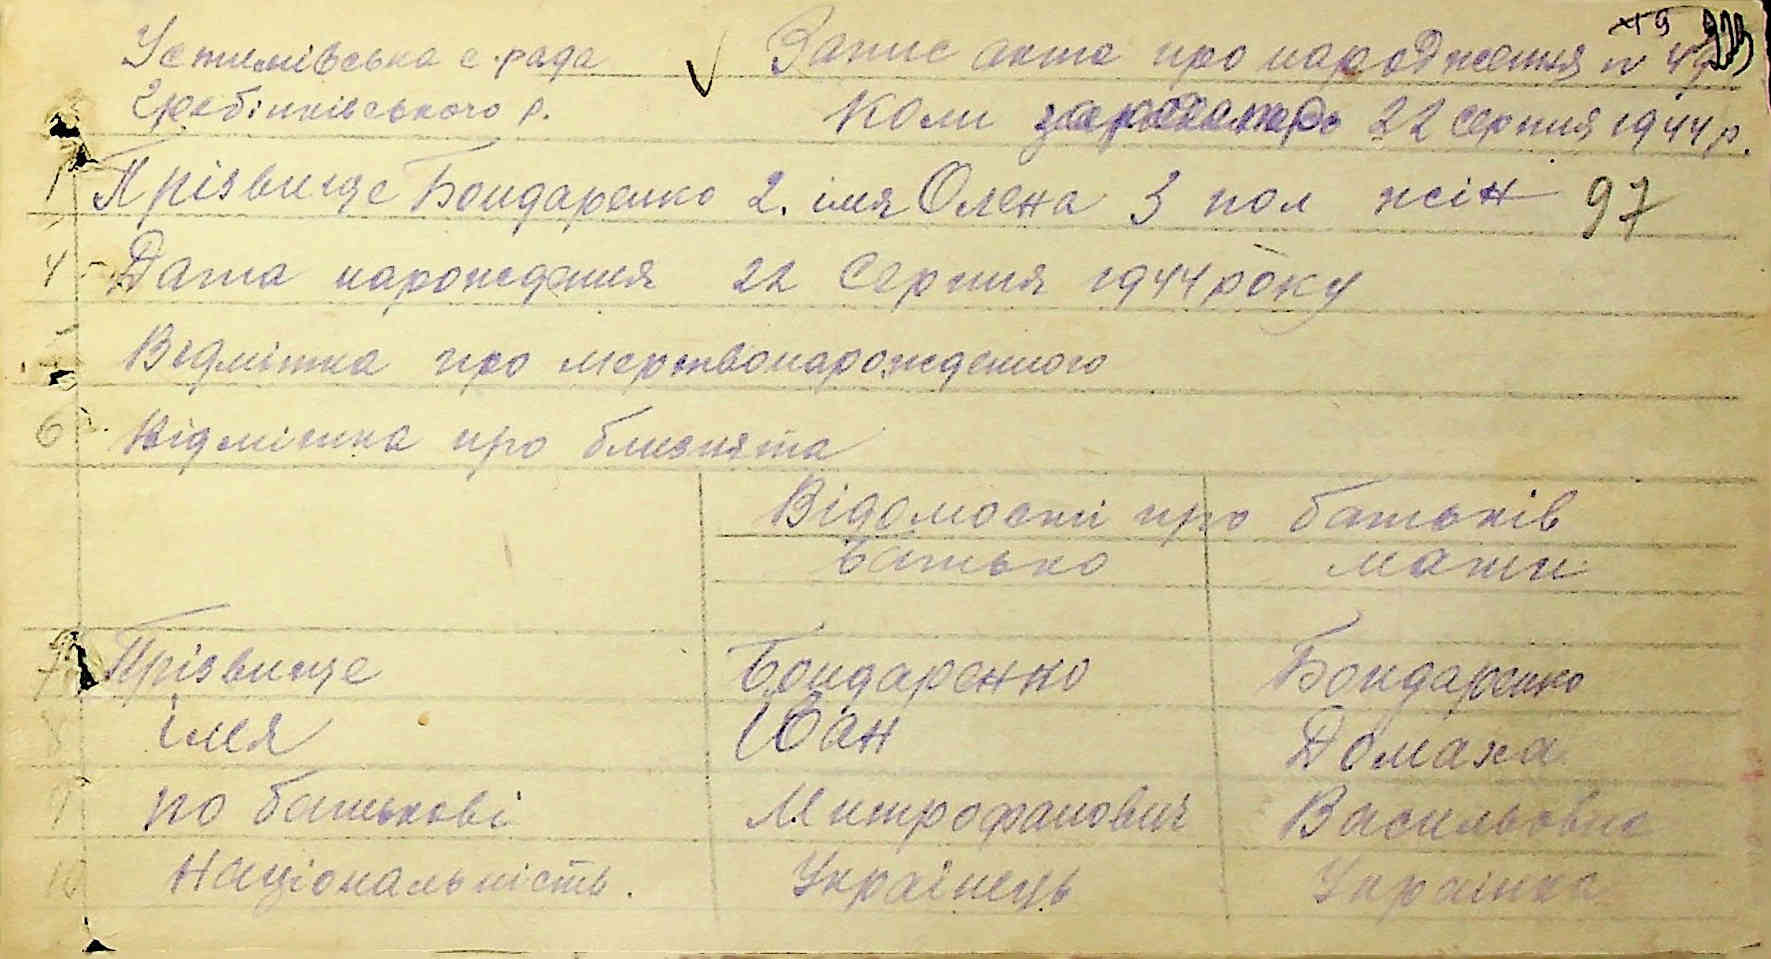 Устимівська с. рада Запис акта про народження №
Гребінківського р. Коли 22 серпня 1944 р.
1 Прізвище Бондаренко 2. імя Олена 3 пол жін 97
4 Дата нарождения 22 Серпня 1944 року
Відмітка про мертвонарожденного
6 Відмітка про близнята
Відомості про батьків
батько мати
7 Прізвище Бондаренко Бондаренко
8 імя Іван Домаха
9 по батькові Митрофанович Васильовна
10 Національність. Українець Українка